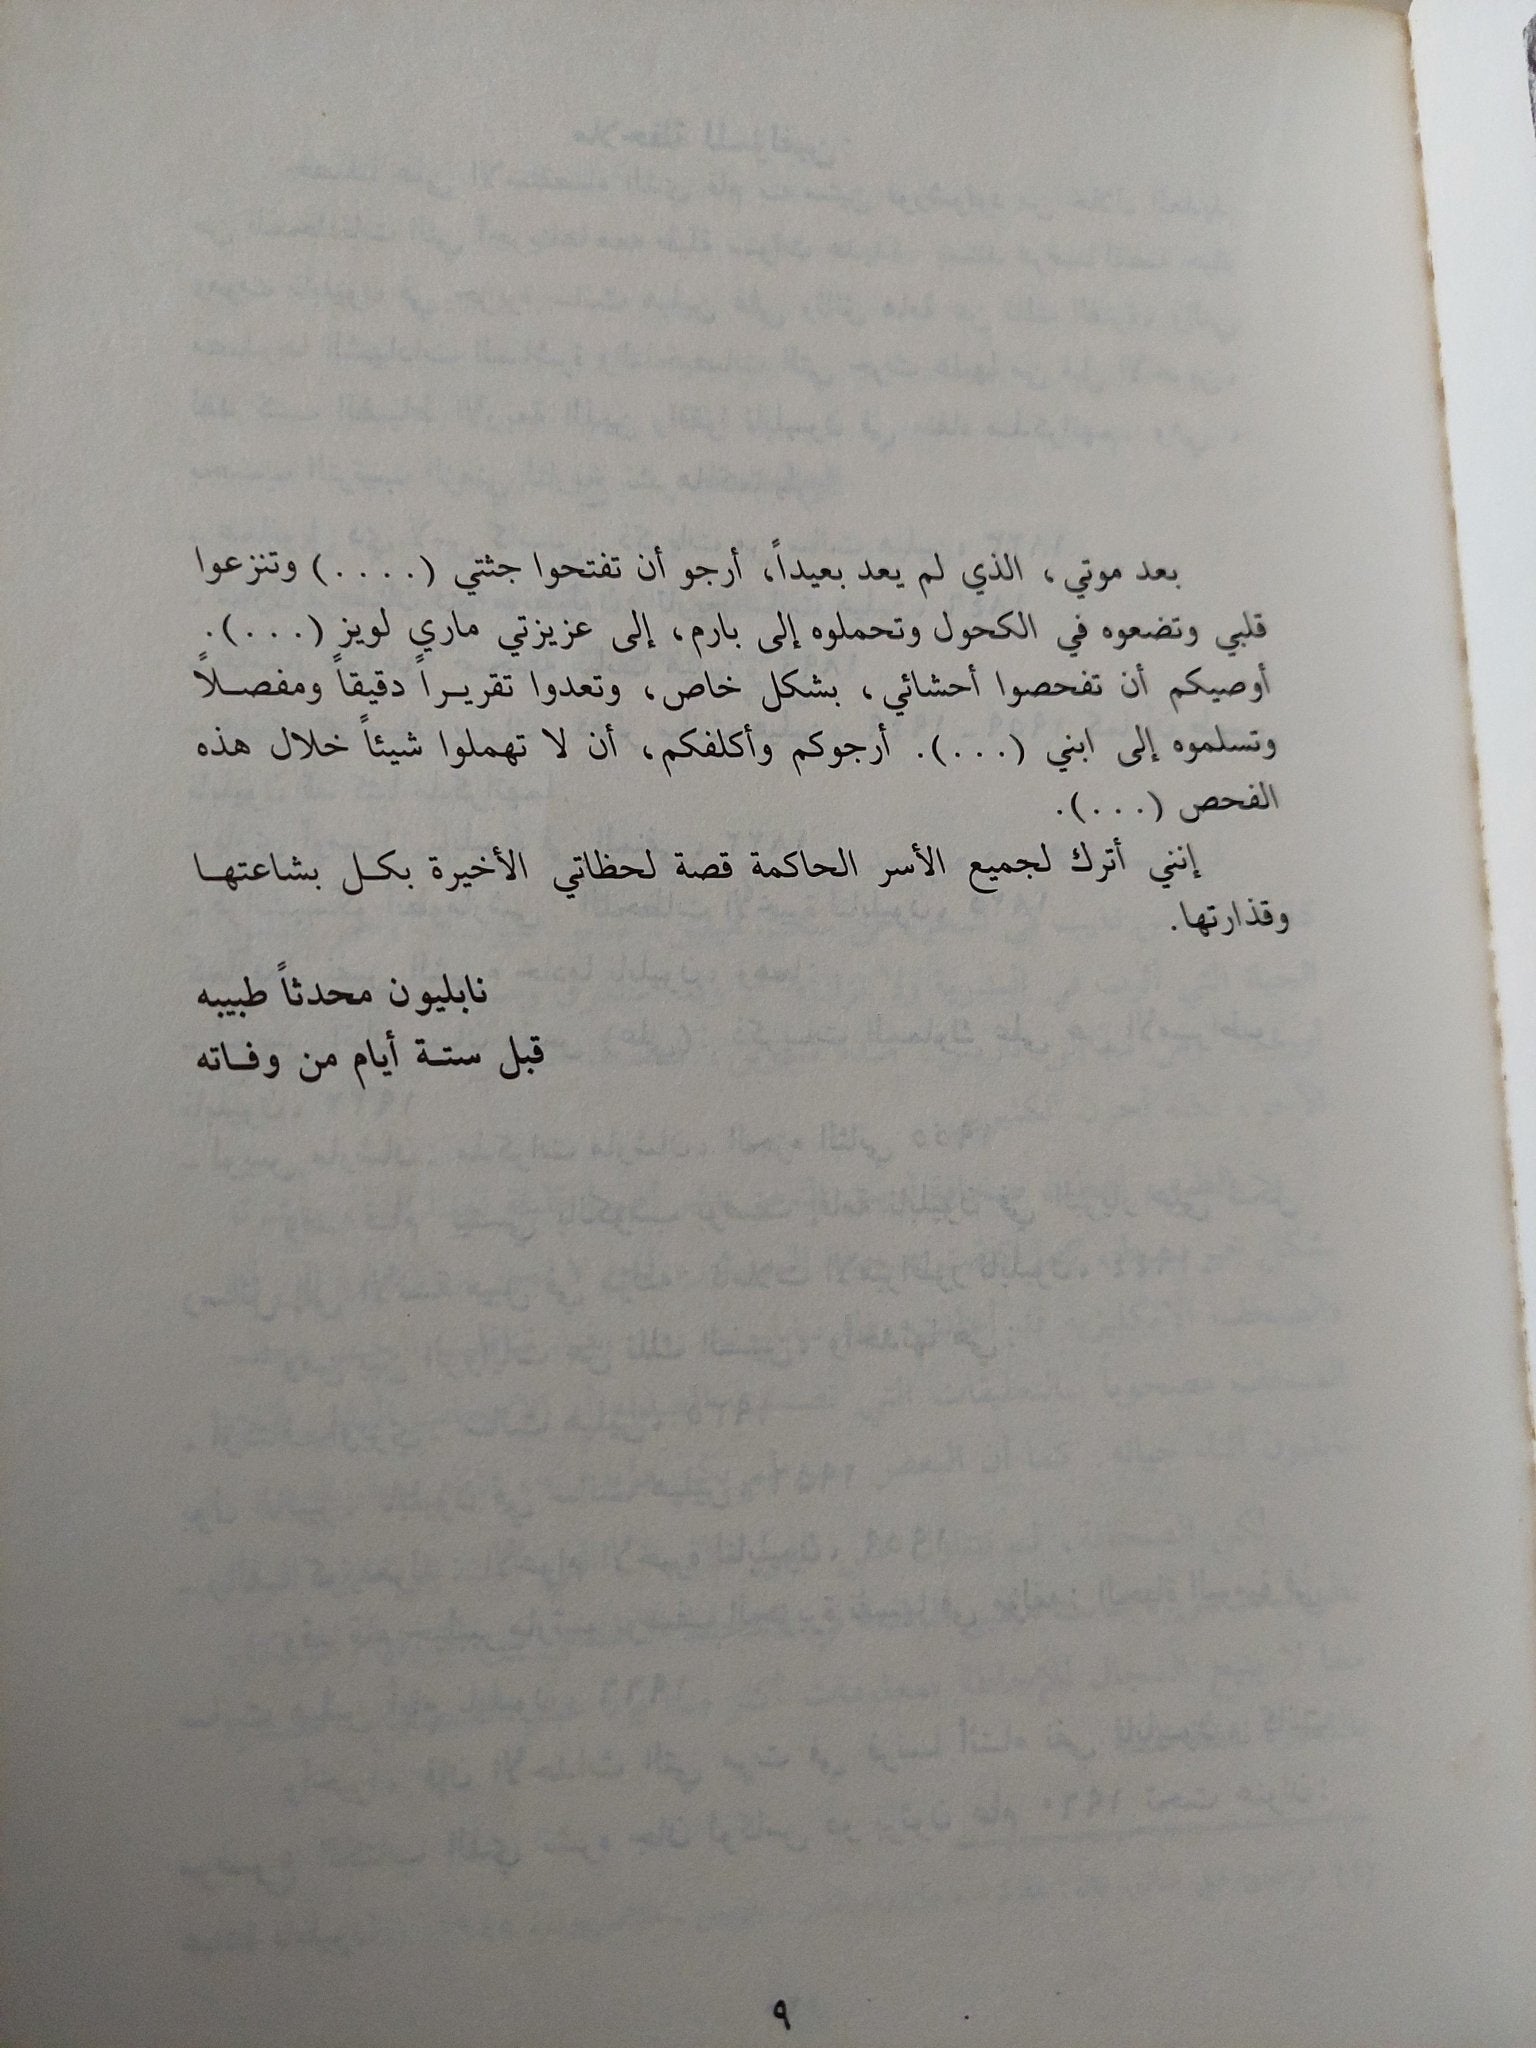 بعد موتي، الذي لم يعد بعيداً، أرجو أن تفتحوا جثتي (....) وتنزعوا
قلبي وتضعوه في الكحول وتحملوه إلى بارم، إلى عزيزتي ماري لويز (...).
أوصيكم أن تفحصوا أحشائي، بشكل خاص، وتعدوا تقريراً دقيقاً ومفصلاً
وتسلموه إلى ابني (...). أرجوكم وأكلفكم، أن لا تهملوا شيئاً خلال هذه
الفحص (...).
إنني أترك لجميع الأسر الحاكمة قصة لحظاتي الأخيرة بكل بشاعتها
وقذارتها.
نابليون محدثاً طبيبه
قبل ستة أيام من وفاته
٩